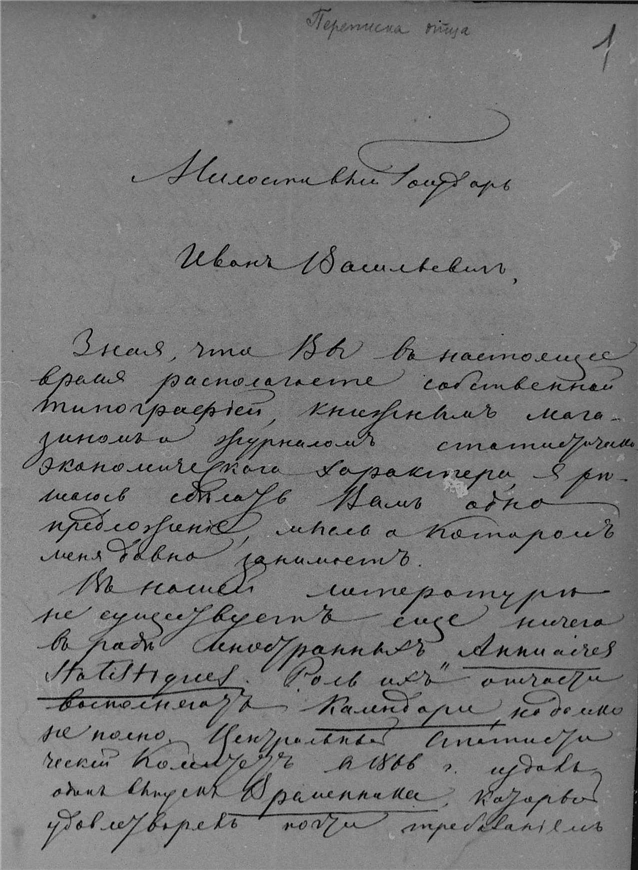 Переписка отца
1
Милостивый Государь
Иванъ Васильевичъ,
Зная, что Вы въ настоящее
время располагаете собственной
типографіей, книжнымъ мага-
зиномъ и журналомъ статистично
экономическаго характера, я рѣ-
шаюсь сдѣлать Вамъ одно
предложеніе, мысль о которомъ
меня давно занимаетъ.
Въ нашей литературѣ
не существуетъ еще ничего
въ родѣ иностранныхъ Annuaires
Statistiques. Роль ихъ отчасти
восполняютъ Календари, но далеко
не полно. Центральный Статисти
ческій Комитетъ в 1866 г. издалъ
одинъ выпускъ Временника, который
удовлетворялъ почти требованіямъ